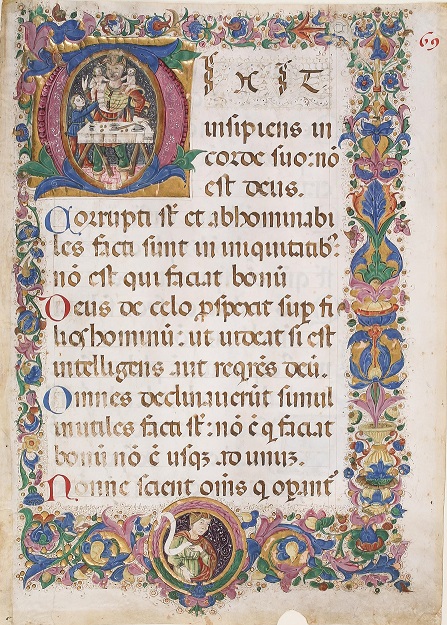 69
DIXIT
insipiens in
corde suo: nō
est deus.
Corrupti sr̄ et abhominabi
les facti sunt in iniquitatib:
nō est qui faciat bonū
Deus de celo ꝓspexit suꝑ fi
lios hominū: ut uideat si est
intelligens aut reqrēs deū.
Omnes declinauerūt simul
inutiles facti sr̄: nō ē q faciat
bonū nō ē usqꝫ ad unuꝫ.
Nonne scient om̄s q oꝑant᷑